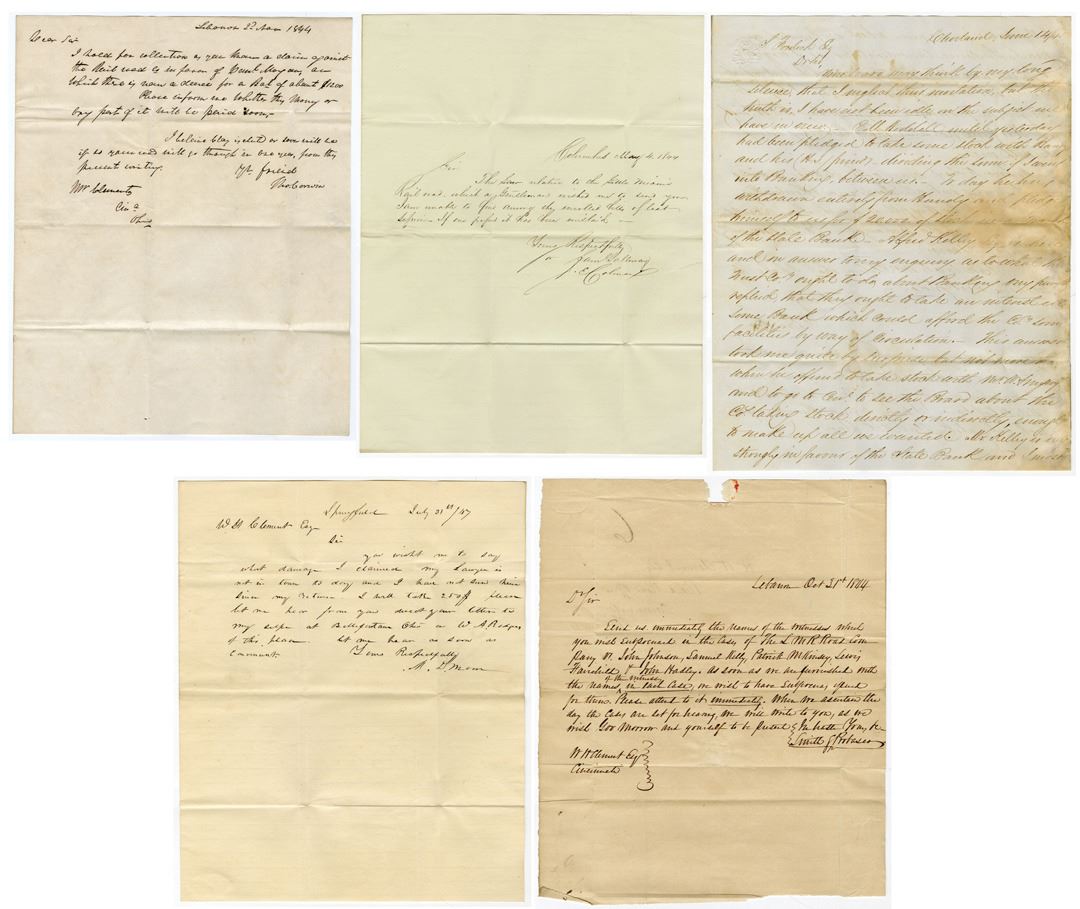 Lebanon 2d Nov 1844
Dear Sir
I hold for collection as you know a claim against
the Rail road Co in favor of Morgan, on
which there is now a decree for a Bal of about $1200
Please inform me whether this money or
any part of it will be paid soon,
I believe Clay is elected or soon will be
if so your road will go through in one year, from this
present writing.
Yr friend
Tho: Corwin
Mr Clement
Cin a
Ohio
Columbus May 4. 1844
Sir
The Law relative to the Little Miami
Rail road, which a Gentleman wished us to send you
I am unable to find among the enrolled bills of last
session. If one passed it has been mislaid.
Yours Respectfully
Saml Galloway
Cleveland, June 14
Dr Sir,
may think by my long
silence, that I neglect this negotiation, but the
truth is, I have not been idle on the subject we
have in view. until yesterday
had been pledged to take some stock with
and his dividing the sum
into Banking between us. To day he has
withdrawn entirely from Handy and
himself to
of the State Bank. Alfred Kelley
and in answer to my enquiry as to what the
Trust Co. ought to do about Banking
replied that they ought to take an interest in
some Bank which could afford the Co. some
facilities by way of circulation. This answer
took me quite by surprise, but not more so
when he offered to take stock with
and to go to Cin. to see the Board about the
Co. taking stock directly or indirectly, enough
to make up all we wanted. Mr Kelley is
strongly in favour of the State Bank and
Springfield July 31st/47
W H Clement Esq
Sir
you wisht me to say
what damage I claimed my Lawyer is
not in town to day and I have not seen him
since my Return I will take 250$ please
let me hear from you direct your letter to
my self at Bellefontaine Ohio or W A Rodgers
of this place let me hear as soon as
Yours Respecfully
M. D.
Lebanon Oct 31st 1844
Dr Sir
Send us immediately the names of the witnesses which
you wish subpoenaed in the cases of The L M R Road Com
pany vs. John Johnson, Samuel Kelly, Patrick McKinsey, Lewis
Fairchild & John Hadley. As soon as we are furnished with
of the witnesses
the names in each case, we wish to have subpoenas issued
for them. Please attend to it immediately. When we ascertain the
day the cases are set for hearing, we will write to you, as we
wish Gov Morrow and yourself to be present In haste Yours, &c
Smith & Probasco
W H Clement Esq
Cincinnati